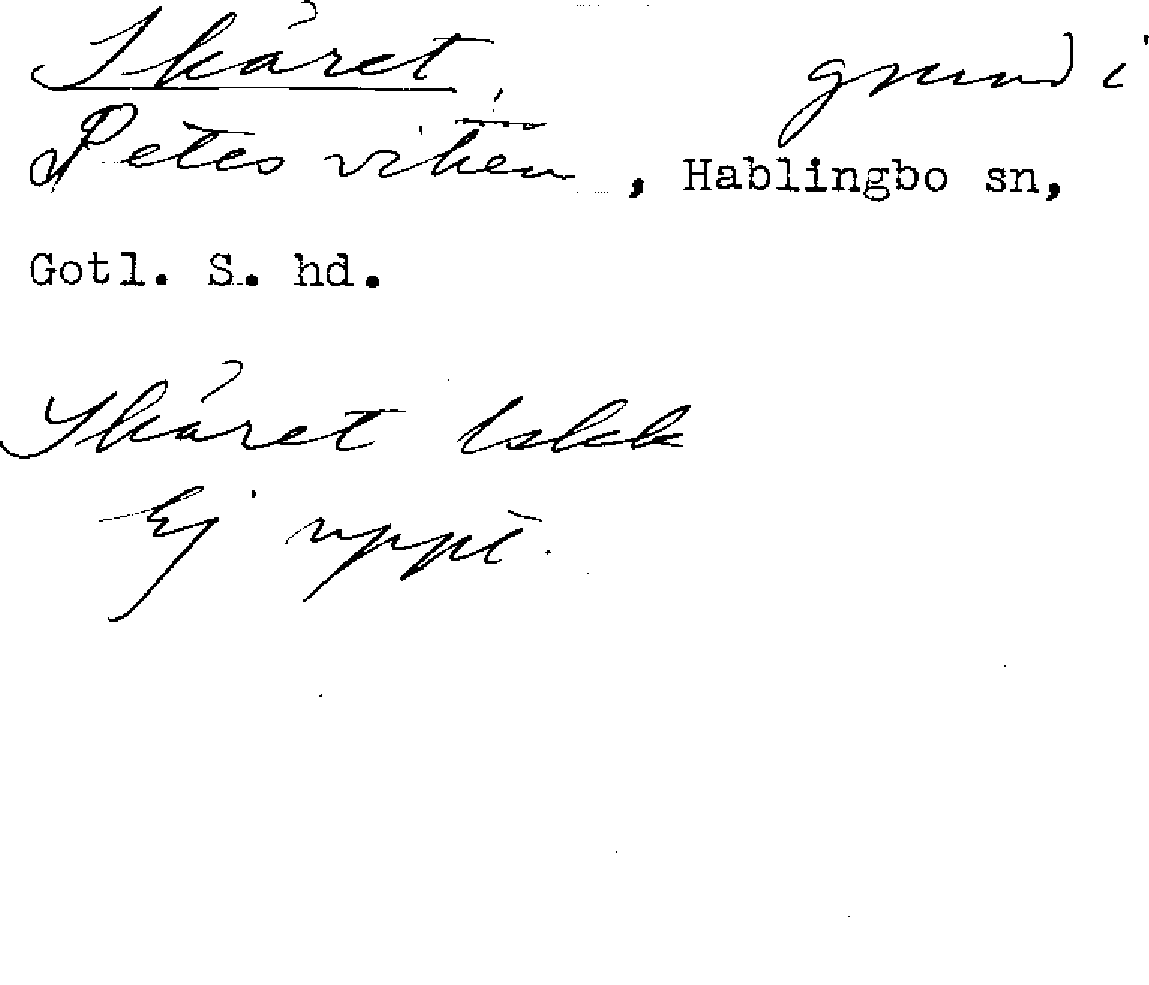 Skäret grund i
Petesviken, Hablingbo sn,
Gotl. S. hd.
Skäret Iskk
Ej uppt.